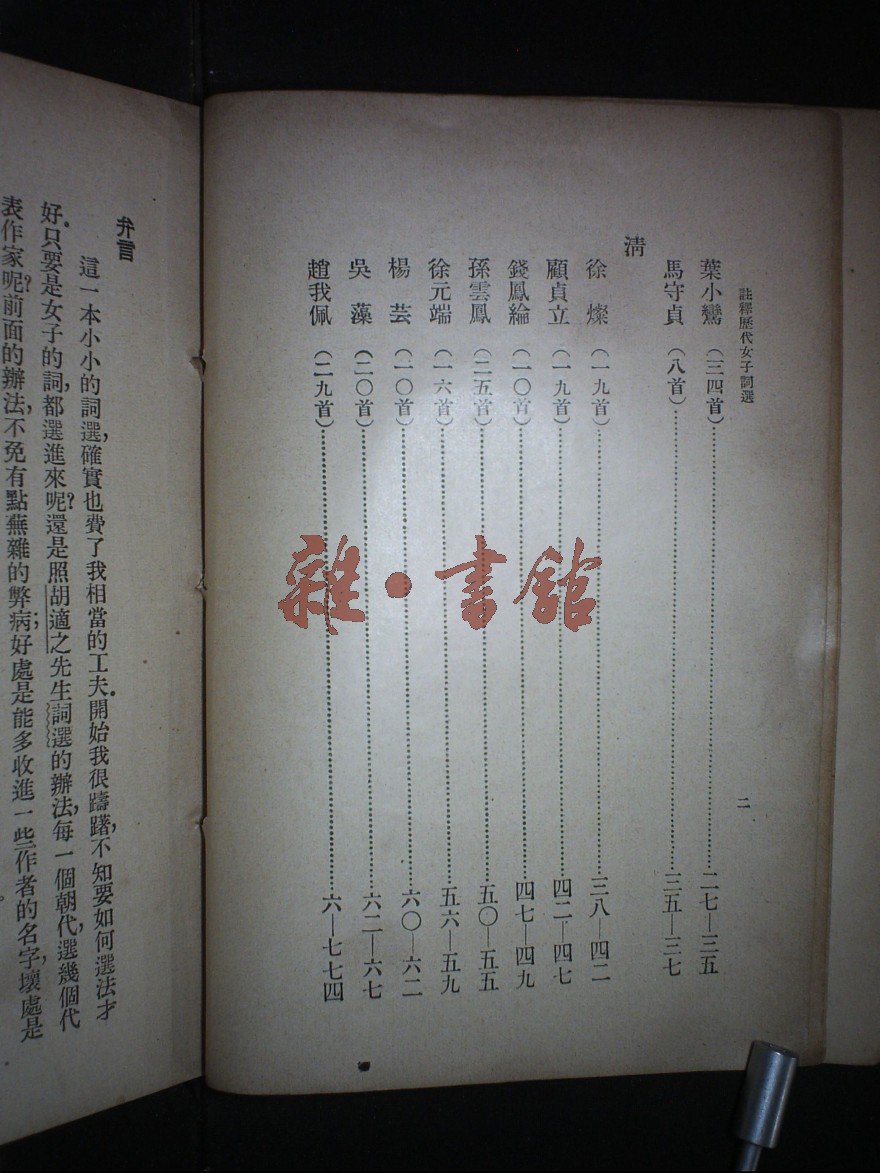 註釋歷代女子詞選
二
葉小鸞（三四首）…………二七—三五
馬守貞（八首）…………三五—三七
清
徐燦（一九首）…………三八—四二
顧貞立（一九首）…………四二—四七
錢鳳綸（一〇首）…………四七—四九
孫雲鳳（二五首）…………五〇—五五
徐元端（一六首）…………五六—五九
楊芸（一〇首）…………六〇—六二
吳藻（二〇首）…………六二—六七
趙我佩（二九首）…………六—七七四
弁言
這一本小小的詞選，確實也費了我相當的工夫。開始我很躊躇，不知要如何選法才
好。只要是女子的詞，都選進來呢？還是照胡適之先生詞選的辦法，每一個朝代，選幾個代
表作家呢？前面的辦法，不免有點蕪雜的弊病；好處是能多收進一些作者的名字，壞處是
雜·書館